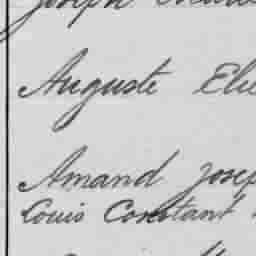 Joseph
Auguste Elie
Amand Josep
Louis Constant